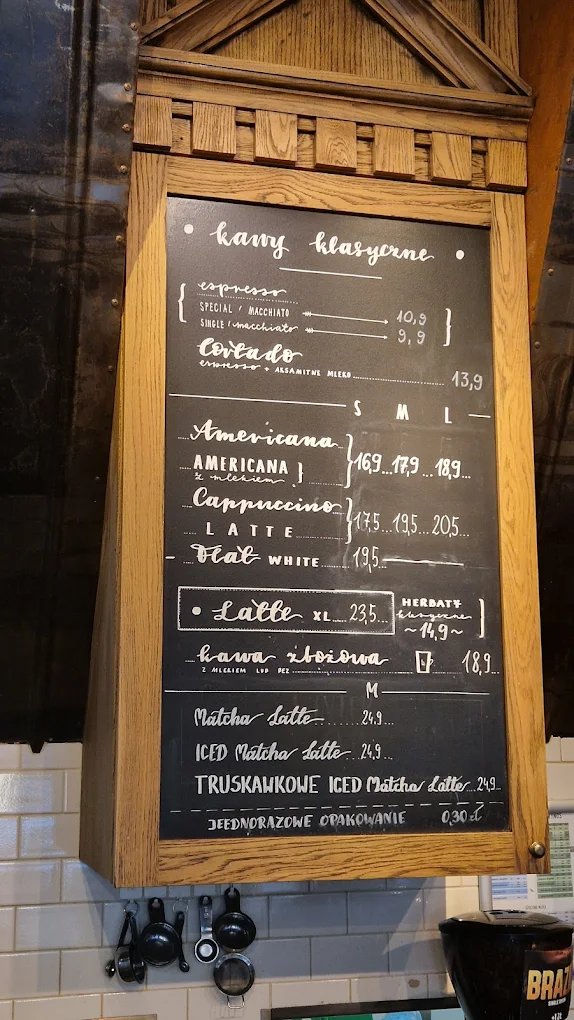 • kawy klasyczne •
espresso
SPECIAL / MACCHIATO 10,9
SINGLE / macchiato 9,9
Cortado
espresso + AKSAMITNE MLEKO 13,9
S M L
Americana
AMERICANA 16,9 ... 17,9 ... 18,9
z mlekiem
Cappuccino
LATTE 17,5 ... 19,5 ... 20,5
Flat WHITE 19,5
• Latte XL 23,5
HERBATY
klasyczne
~14,9~
kawa zbożowa 18,9
Z MLEKIEM LUB BEZ
M
Matcha Latte 24,9
ICED Matcha Latte 24,9
TRUSKAWKOWE ICED Matcha Latte 24,9
JEEDNORAZOWE OPAKOWANIE 0,30 zł
BRAZ